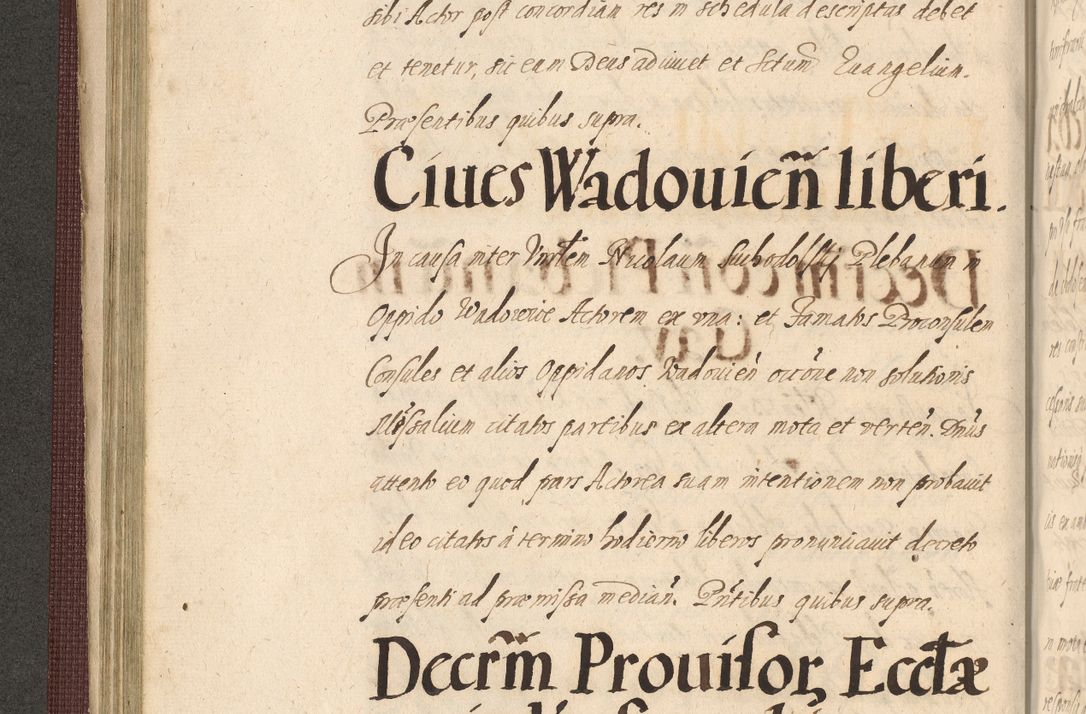 sibi Actor post concordiam res in schedula descriptas debet
et tenetur, sic eum Deus adiuvet et Sctum̃ Euangelium.
Præsentibus quibus supra.
Ciues Wadouien̄ liberi.
In causa inter Vnrłem Nicolaum Suchodolski Plebanum in
Oppido Wadowice Actorem ex vna: et Famatos Proconsulem
Consules et alios Oppidanos Wadouien̄ occõne non solutionis
Missalium citatos partibus ex altera mota et verten̄. Dn̄us
attento eo quod pars Actorea suam intentionem non probauit
ideo citatos à termino hodierno liberos pronunciauit decreto
præsenti ad præmissa median̄. Pn̄tibus quibus supra.
Decrm̄ Prouisor Eccłæ